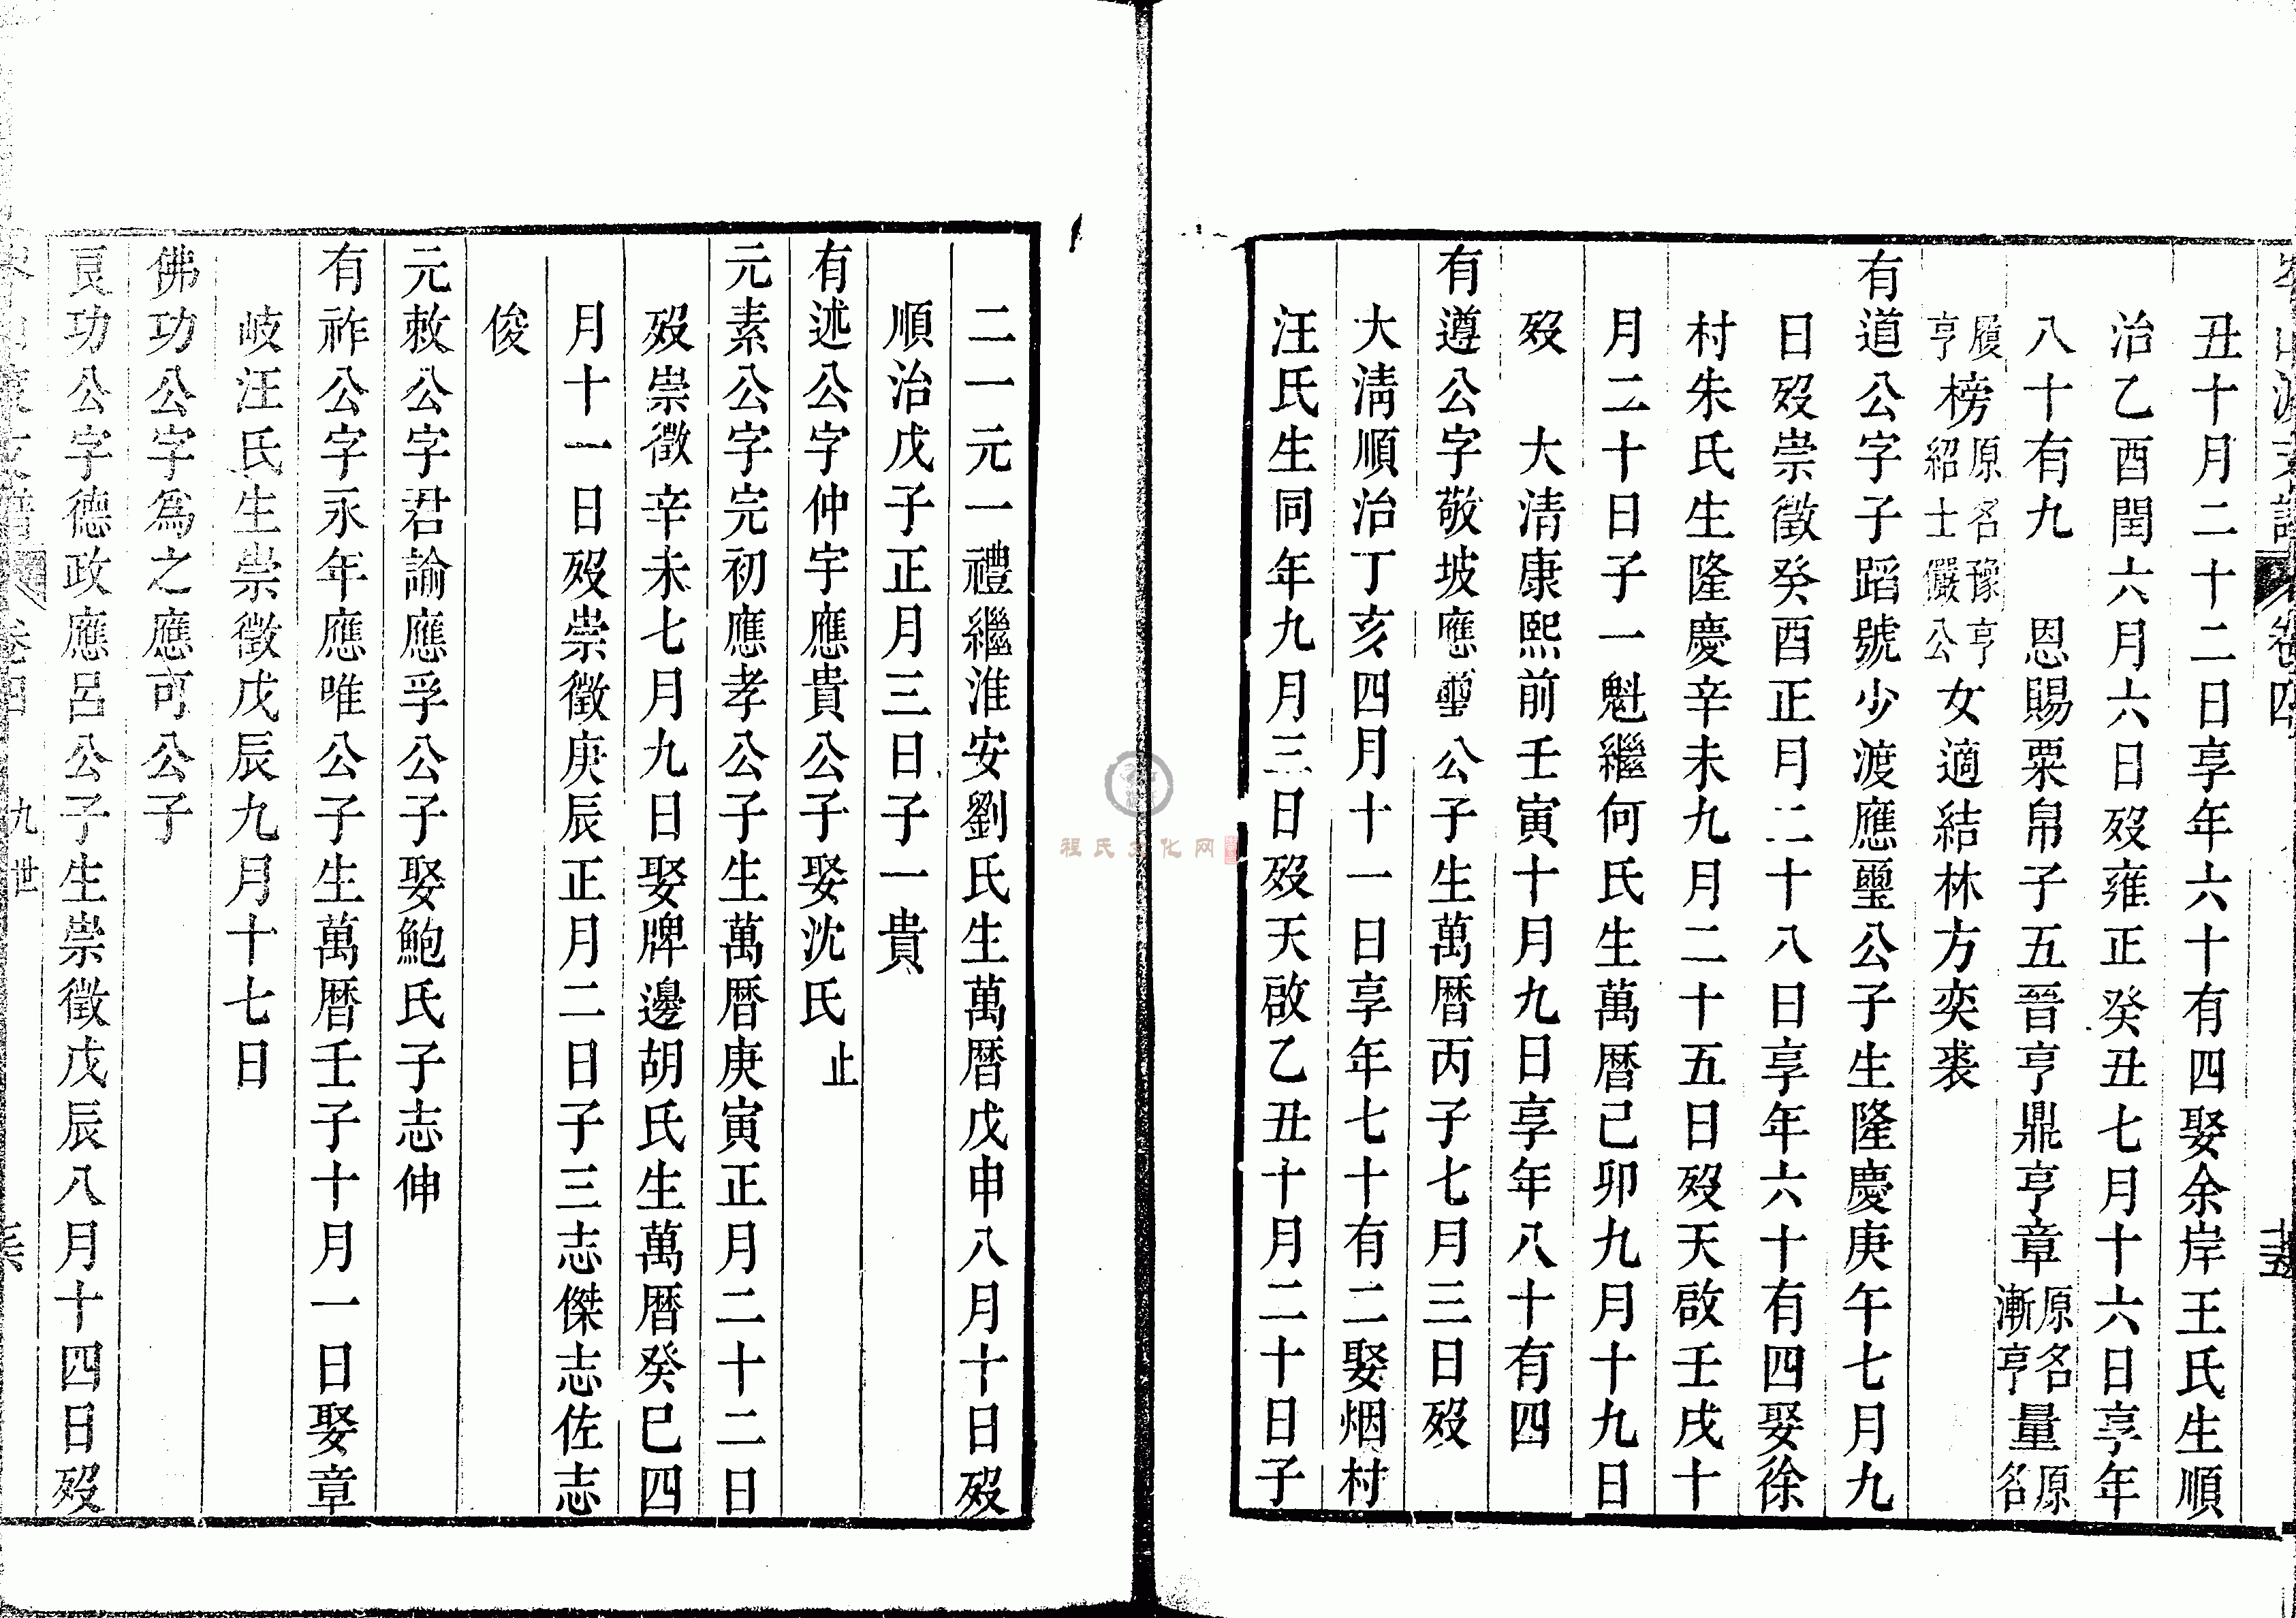 丑十月二十二日享年六十有四娶余岸王氏生順
治乙酉閏六月六日歿雍正癸丑七月十六日享年
八十有九　恩賜粟帛子五晉亨鼎亨章原名漸亨量原名
履亨榜原名豫亨紹士儼公女適結林方奕裘
有道公字子蹈號少渡應璽公子生隆慶庚午七月九
日歿崇徵癸酉正月二十八日享年六十有四娶徐
村朱氏生隆慶辛未九月二十五日歿天啟壬戌十
月二十日子一魁繼何氏生萬曆己卯九月十九日
歿　大清康熙前壬寅十月九日享年八十有四
有遵公字敬坡應璽公子生萬曆丙子七月三日歿
大清順治丁亥四月十一日享年七十有二娶烟村
汪氏生同年九月三日歿天啟乙丑十月二十日子
二一元一禮繼淮安劉氏生萬曆戊申八月十日歿
順治戊子正月三日子一貴
有述公字仲宇應貴公子娶沈氏止
元素公字完初應孝公子生萬曆庚寅正月二十二日
歿崇徵辛未七月九日娶牌邊胡氏生萬曆癸巳四
月十一日歿崇徵庚辰正月二日子三志傑志佐志
俊
元敕公字君論應孚公子娶鮑氏子志伸
有祚公字永年應唯公子生萬曆壬子十月一日娶章
岐汪氏生崇徵戊辰九月十七日
佛功公字為之應可公子
良功公字德政應呂公子生崇徵戊辰八月十四日歿
支譜 卷四 九世
程氏文化网